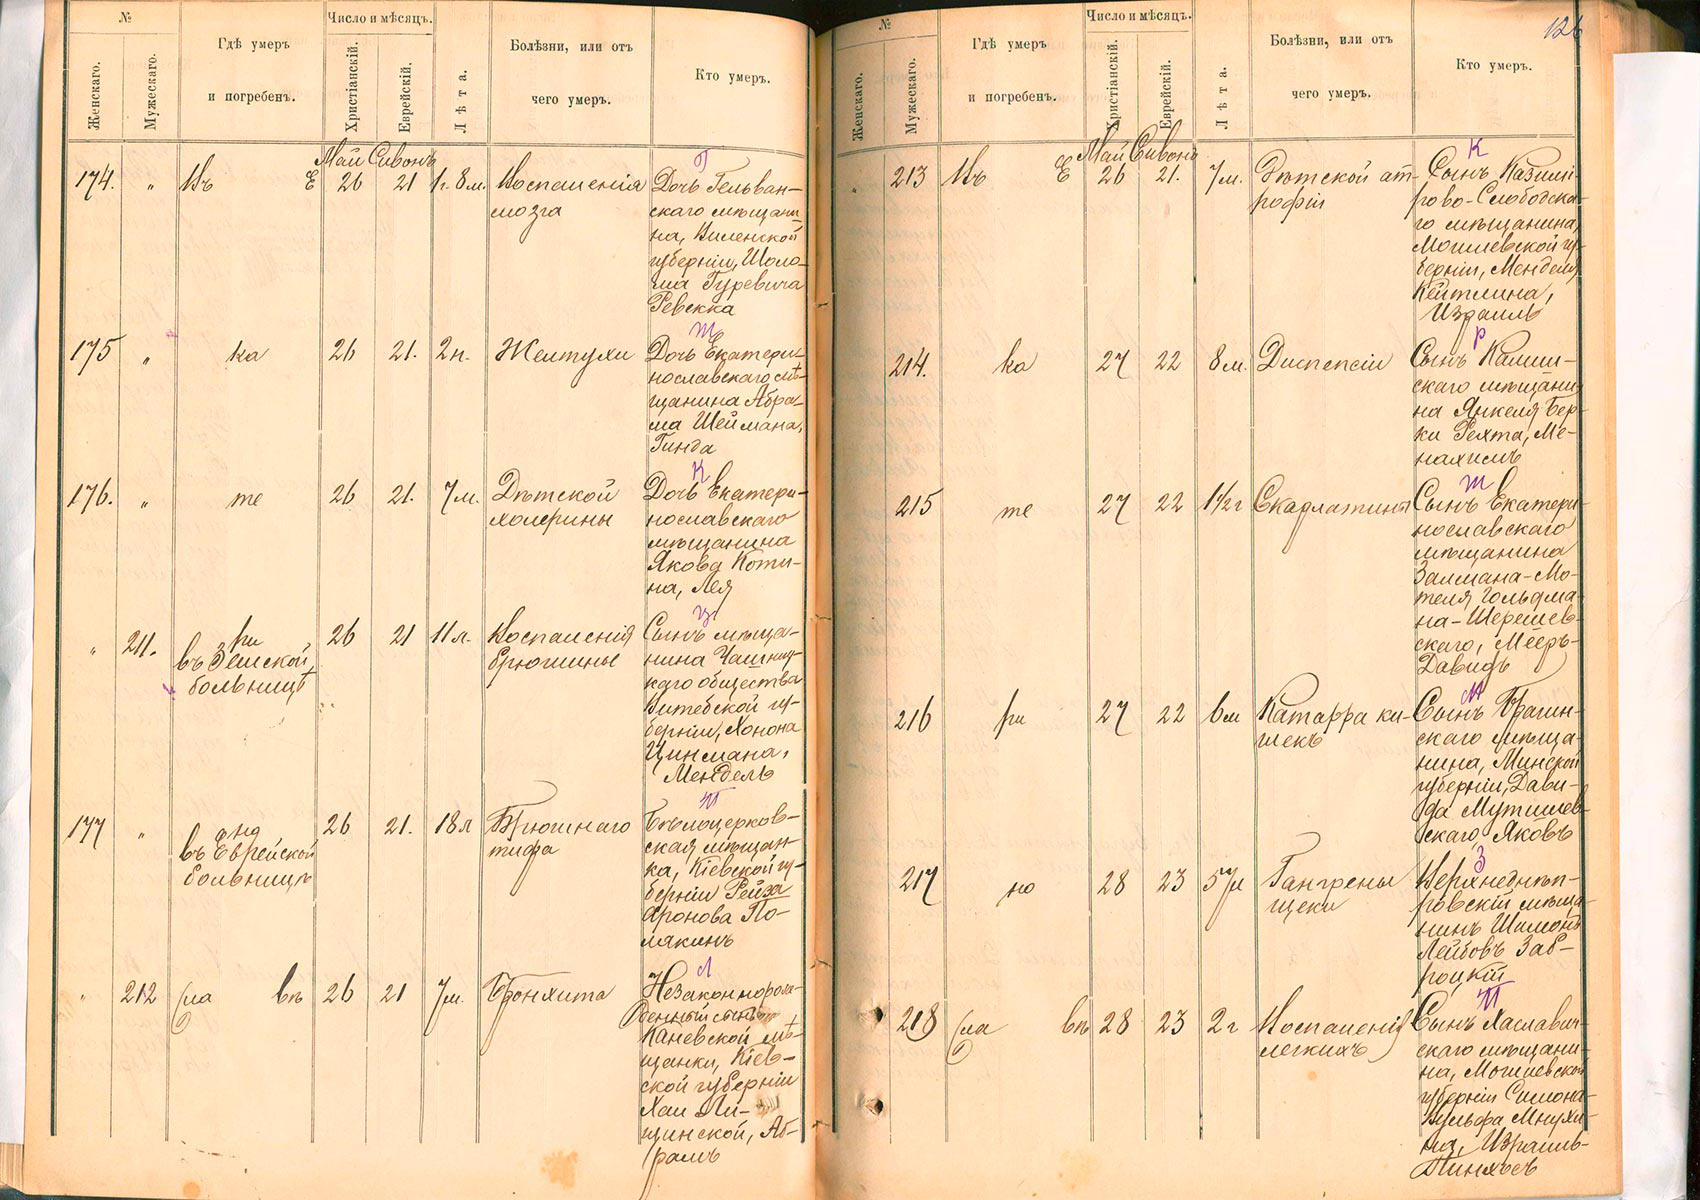 №
Женскаго.
Мужескаго.
Гдѣ умеръ
и погребенъ.
Число и мѣсяцъ.
Христіанскій.
Еврейскій.
Лѣта.
Болѣзни, или отъ
чего умеръ.
Кто умеръ.
Май Сивонъ
174. " Въ Е 26 21 1г. 8м.
Воспаленія
мозга
Г
Дочь Гельван-
скаго мѣщани-
на, Виленской
губерніи, Шоло-
ма Гуревича
Ревекка
175 " ка 26 21. 2н. Желтухи
Ш
Дочь Екатери-
нославскаго мѣ-
щанина Абра-
ма Шеймана,
Гинда
176. " те 26 21. 7м.
Дѣтской
холерины
К
Дочь Екатери-
нославскаго
мѣщанина
Якова Коти-
на, Лея
" 211. ри
въ Земской
больницѣ
26 21 11л.
Воспаленія
брюшины
Ц
Сынъ мѣща-
нина Чашниц-
каго общества
Витебской гу-
берніи, Хонона
Цинмана,
Мендель
177 "
въ Еврейской
больницѣ
26 21. 18л
Брюшнаго
тифа
П
Бѣлоцерков-
ская мѣщан-
ка, Кіевской гу-
берніи Рейза
Аронова По-
лякинъ
" 212 сла вп 26 21 7м. Бронхита
Л
Незаконнорож-
денный сынъ
Каневской мѣ-
щанки, Кіев-
ской губерніи
Хаи Ли-
щинской, Аб-
рамъ
126
№
Женскаго.
Мужескаго.
Гдѣ умеръ
и погребенъ.
Число и мѣсяцъ.
Христіанскій.
Еврейскій.
Лѣта.
Болѣзни, или отъ
чего умеръ.
Кто умеръ.
Май Сивонъ
" 213 Въ Е 26 21. 7м.
Дѣтской ат-
рофіи
К
Сынъ Казими-
рово-Слободска-
го мѣщанина,
Могилевской гу-
берніи, Менделя
Кейтлина,
Израиль
214. ка 27 22 8м. Диспепсіи
Р
Сынъ Калиш-
скаго мѣщани-
на Янкеля Бер-
ки Рехта, Ме-
нахимъ
215 те 27 22 1 1/2 г Скарлатины
Ш
Сынъ Екатери-
нославскаго
мѣщанина
Залмана-Мо-
теля Гольдма-
на-Шерешев-
скаго, Мееръ-
Давидъ
216 ри 27 22 6м
Катарра ки-
шекъ
М
Сынъ Брагин-
скаго мѣща-
нина, Минской
губерніи, Дави-
да Мутилев-
скаго Яковъ
217 но 28 23 57л
Гангрены
щеки
З
Верхнеднѣп-
ровскій мѣща-
нинъ Шимонъ
Лейбовъ Заб-
роцкій
218 сла вп 28 23 2г
Воспаленія
легкихъ
Сынъ Хаславич-
скаго мѣщани-
на, Могилевской
губерніи Симона-
Вульфа Мнухи-
на, Израиль-
Пинхесъ